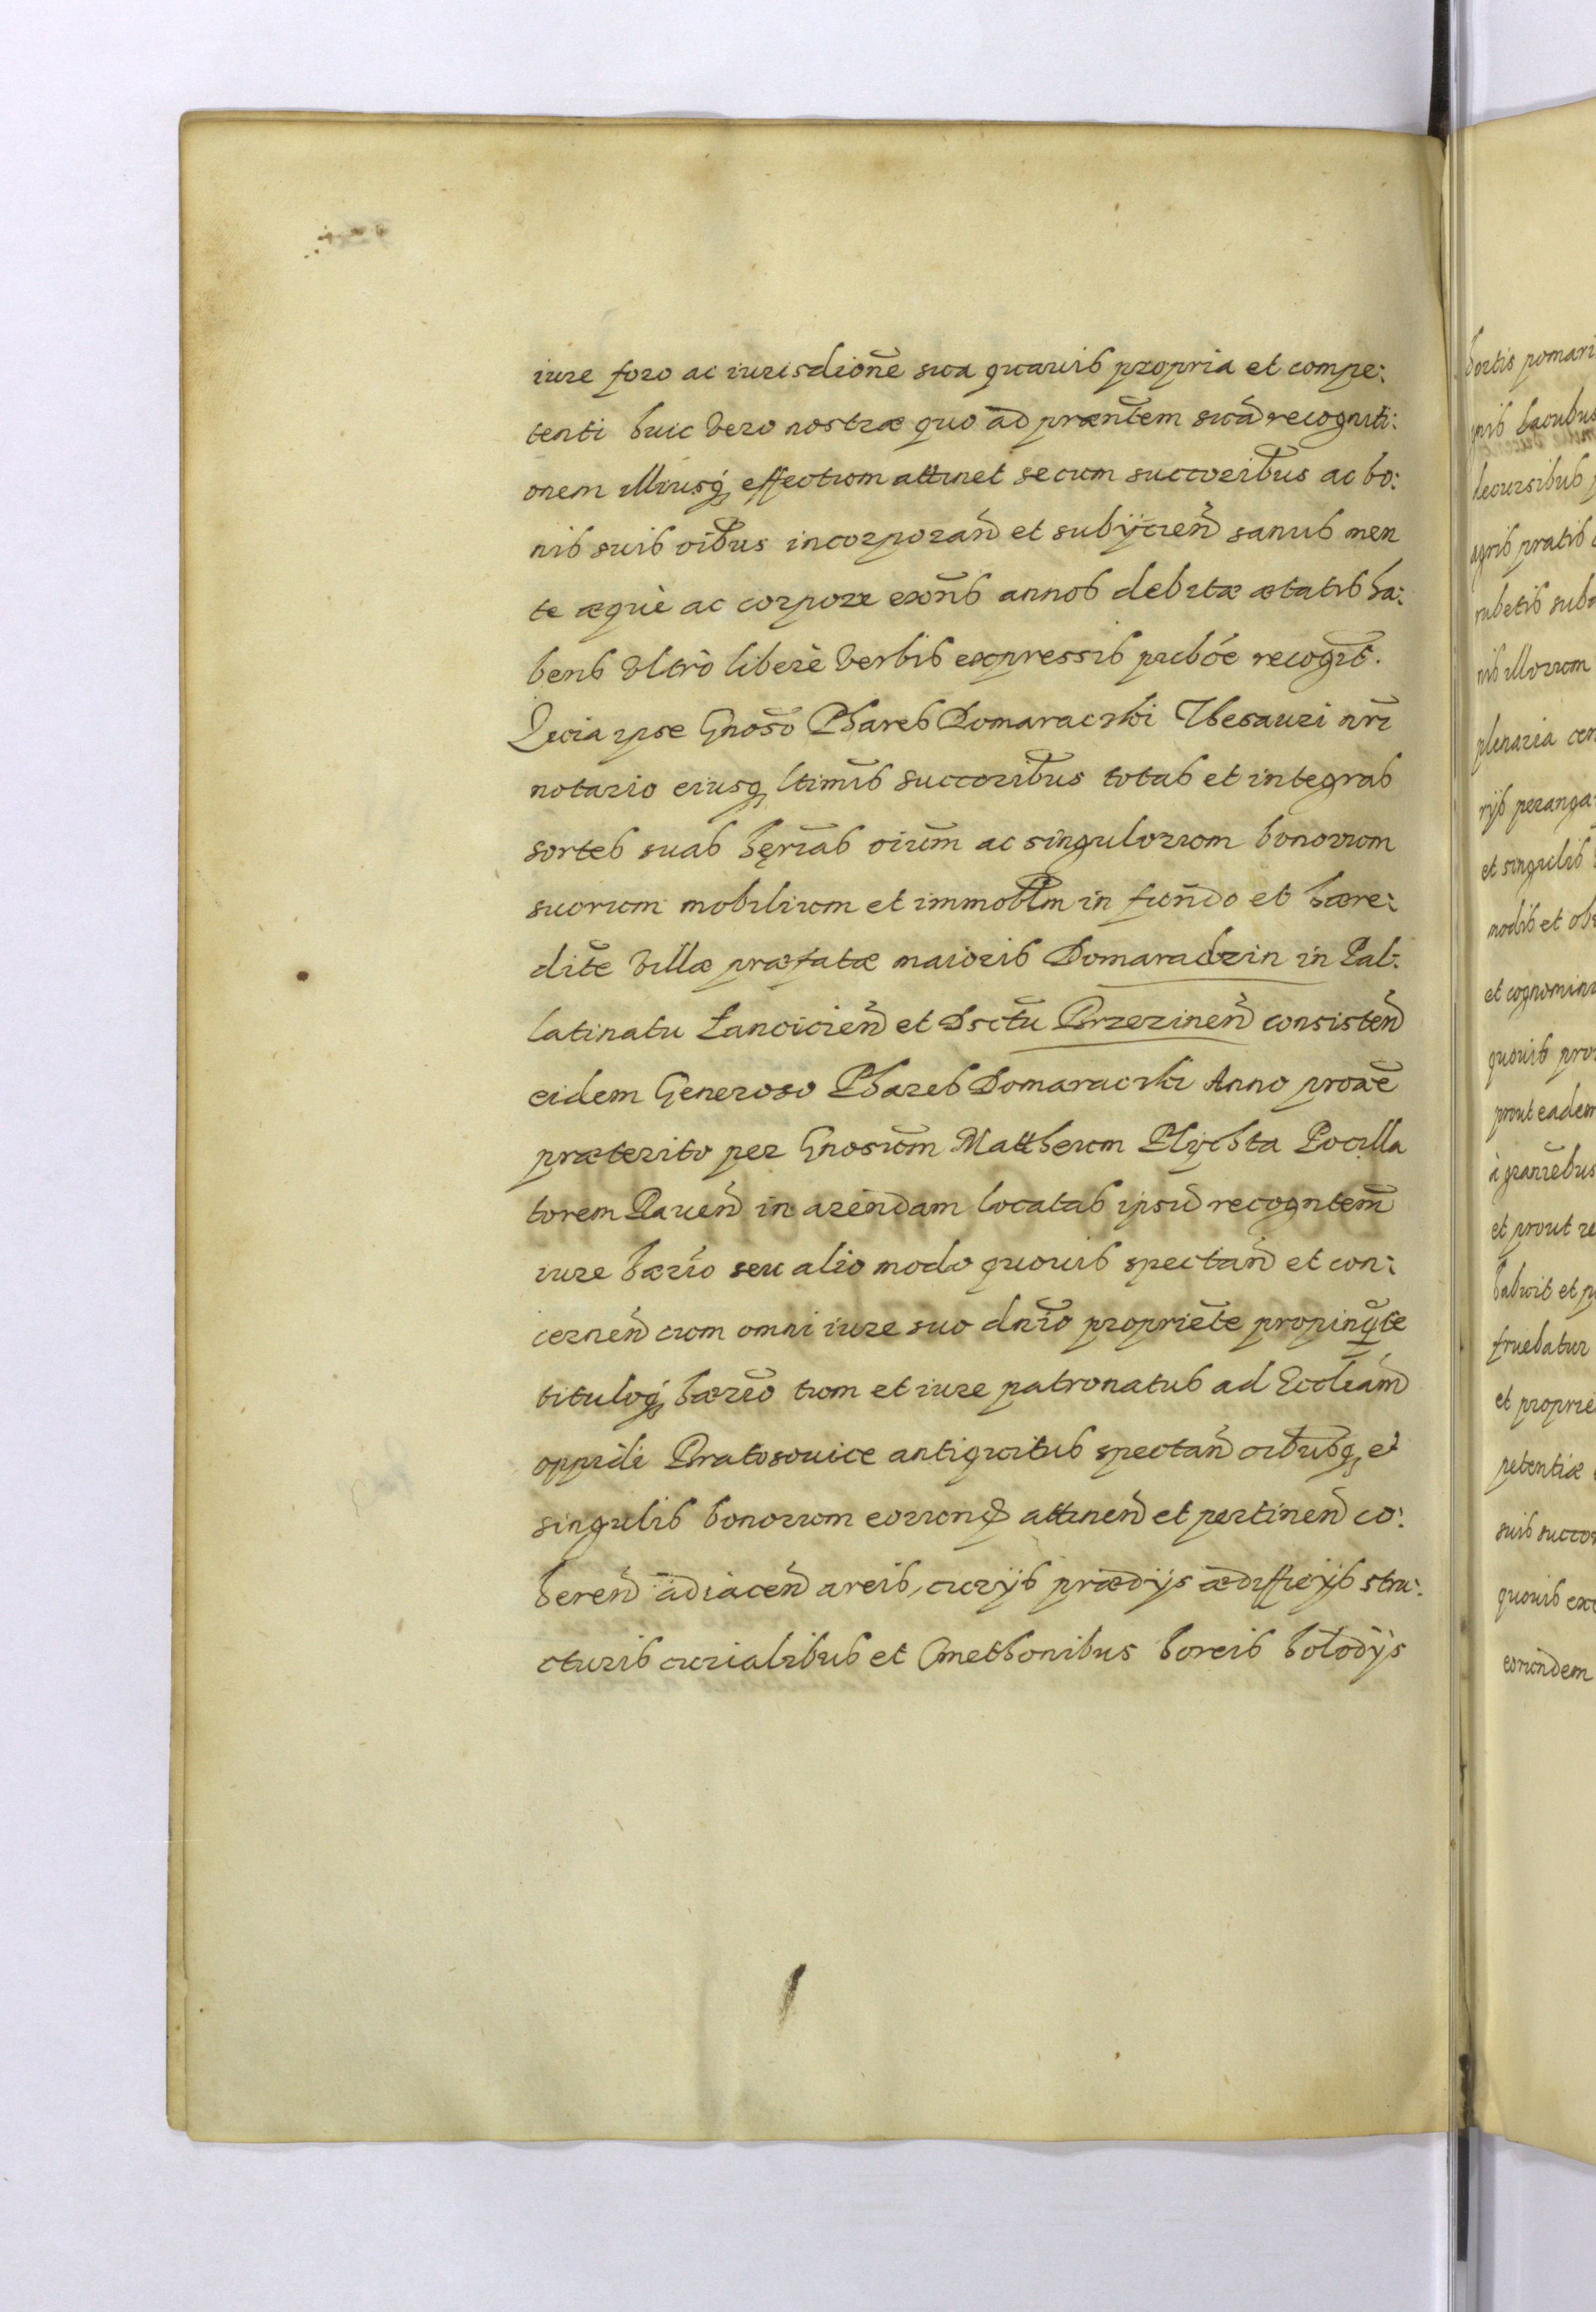 iure foro ac iurisdio͠ne sua quavis propria et compe:
tenti huic vero nostræ quo ad præn͠tem sua͠ recogniti:
onem illiusq̢ effectum attinet se cum succoribus ac bo:
nis suis oi͠bus incorporan͠ et subÿcien͠ sanus men
te æquè ac corpore exn͠s annos debitæ ætatis ha:
bens vltrò liberè verbis expressis publ͠ce recog͠t.
Quia ipse Gnoso͠ Phares Domaraczki Thesauri nr͠i
notario eiusq̢ ltim͠is succoribus totas et integras
sortes suas hęri͠as oium͠ ac singulorum bonorum
suorum mobilium et immobl͠m in fundo et hære:
dit͠e villæ præfatæ maioris Domaradzin in Pal:
latinatu Lancicien͠ et Dsctu͠ Brzezinen͠ consisten͠
eidem Generoso Phares Domaraczki Anno prox͠e
præterito per Gnosum͠ Mattheum Plÿchta Pocilla
torem Raven͠ in arendam locatas ipsu͠ recogntem͠
iure hærio͠ seu alio modo quovis spectan͠ et con:
cernen͠ cum omni iure suo dn͠io propriet͠e propinq͠te
tituloq̢ hæreo͠ tum et iure patronatus ad Eccliam͠
oppidi Bratosouice antiquitus spectan͠ oibusq̢ et
singulis bonorum eorund͠ attinen͠ et pertinen͠ co:
heren͠ adiacen͠ areis, curÿs prædÿs ædifficÿs stru:
cturis curialibus et Cmethonibus horeis bolodÿs
hortis pomari
lacubus
decursibus
agris pratis
rubetis sub
nis illorum
plenaria cen
rÿs peranga
et singulis
modis et ob
et cognomin
quovis pro
prout eadem
et prout re
habuit et p
fruebatur
et proprie
petentiæ
suis succor
quovis exc
eorundem